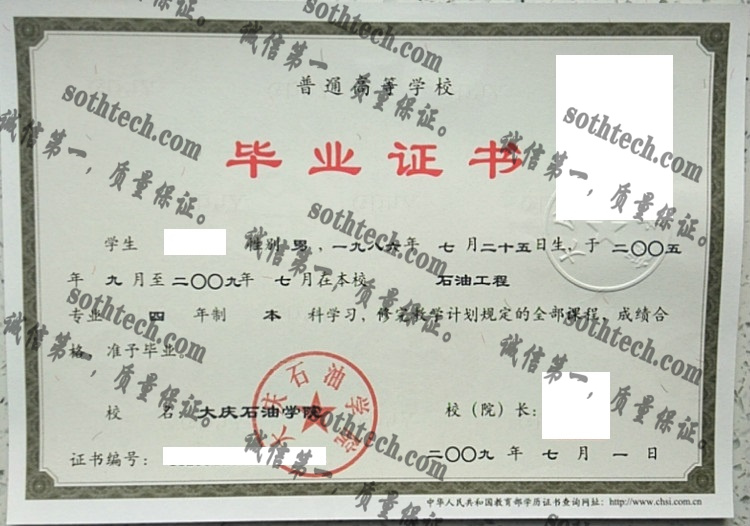 普通高等学校
毕业证书
学生 性别 男 ,一九八六年 七 月二十五日生,于 二〇〇五
年 九 月至二〇〇九年 七 月在本校 石油工程
专业 四 年制 本 科学习,修完教学计划规定的全部课程,成绩合
格,准予毕业。
校 名: 大庆石油学院 校(院)长:
大庆石油学院
证书编号: 二〇〇九 年 七 月 一 日
中华人民共和国教育部学历证书查询网址: http://www.chsi.com.cn
sothtech.com
诚信第一,质量保证。
sothtech.com
诚信第一,质量保证。
sothtech.com
诚信第一,质量保证。
sothtech.com
诚信第一,质量保证。
sothtech.com
诚信第一,质量保证。
sothtech.com
诚信第一,质量保证。
sothtech.com
诚信第一,质量保证。